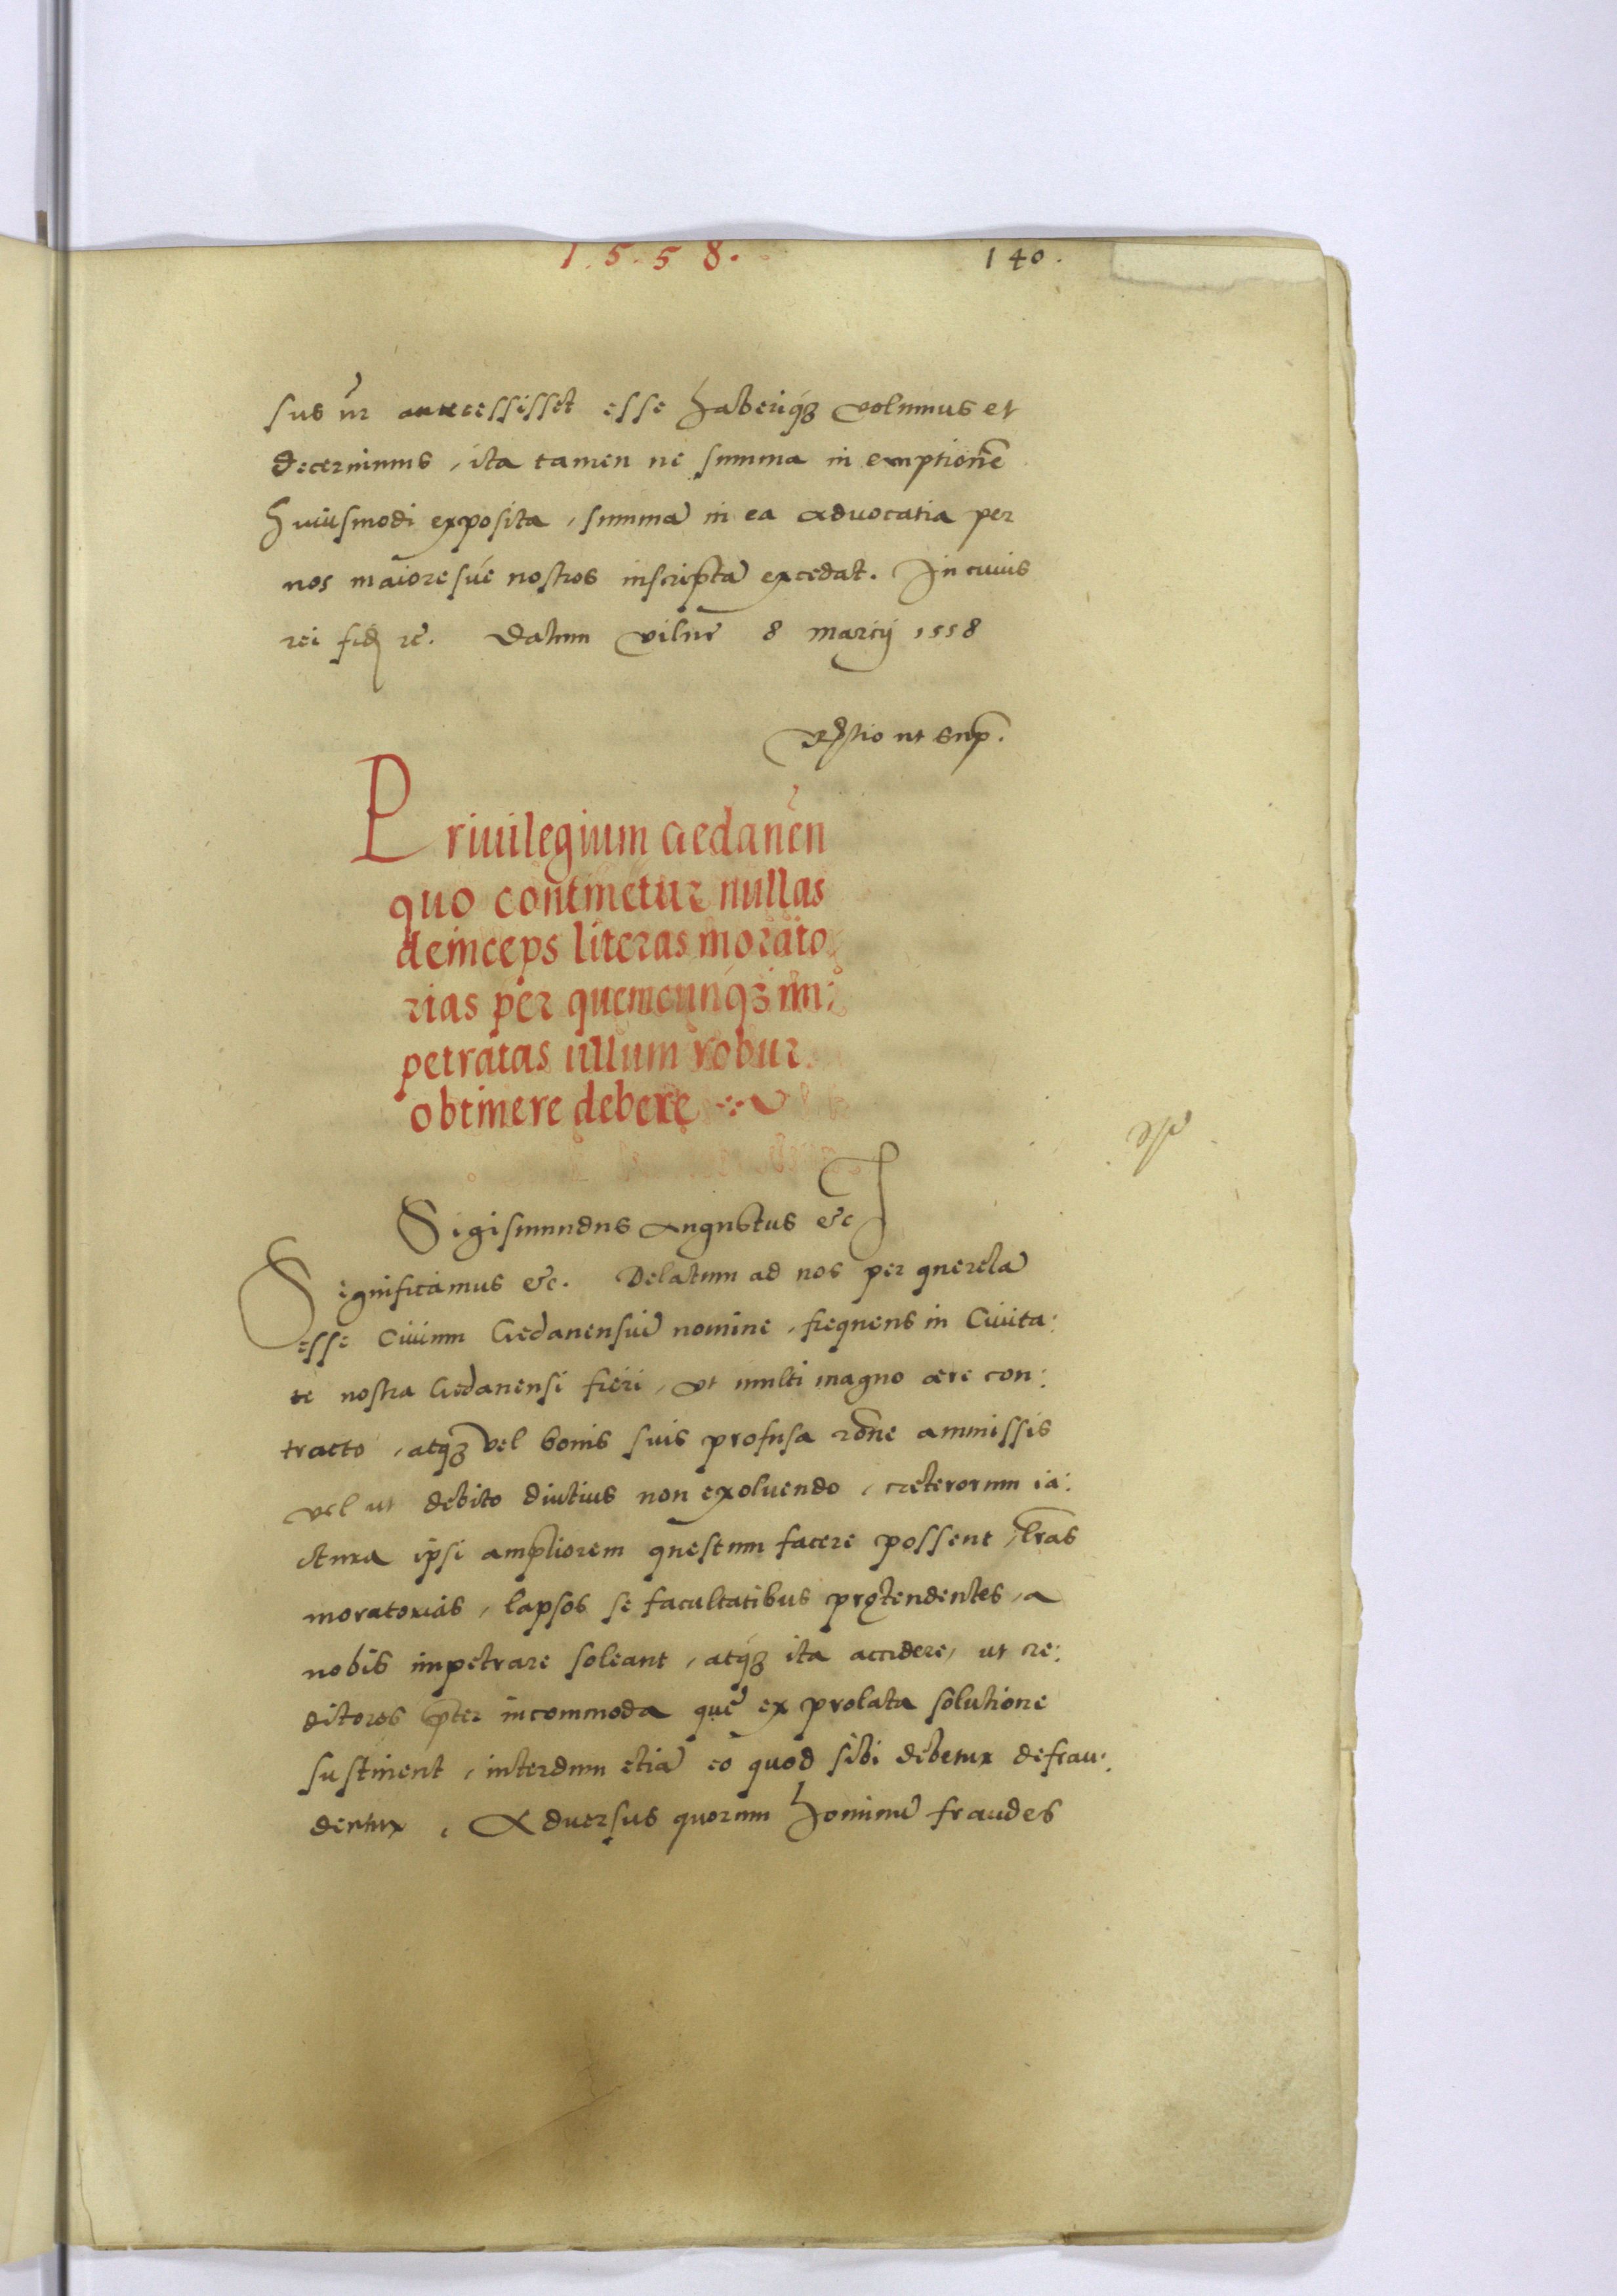 1.5.58.
140.
sus nr̃ antecessisset esse haberiq́ꝫ volumus et
decernimus, ita tamen ne summa in emptionẽ
huiusmodi exposita, summã in ea aduocatia per
nos maioresúe nostros inscriptã excedat. In cuius
rei fidẽ ꝛc̃. Datum Vilnę 8 Marcij 1558
ut sup̃.
Priuilegium Gedanẽn
quo continetur nullas
deinceps literas morato
rias per quemcunq́ꝫ im:
petratas ullum robur
obtinere debere
Sigismundus Augustus &c
Significamus &c. Delatum ad nos per querelã
esse Ciuium Gedanensiũ nomine, frequens in Ciuita:
te nostra Gedanensi fieri, vt multi magno aere con:
tracto, atqꝫ vel bonis suis profusa rõne ammissis
vel ut debito diutius non exoluendo, cęterorum ia:
ctura ipsi ampliorem questum facere possent, lr̃as
moratorias, lapsos se facultatibus prętendentes, a
nobis impetrare soleant, atq́ꝫ ita accidere, ut cre:
ditores p̃ter incommoda quę ex prolata solutione
sustinent, interdum etiã eo quod sibi debetur defrau:
dentur, Aduersus quorum hominũ fraudes